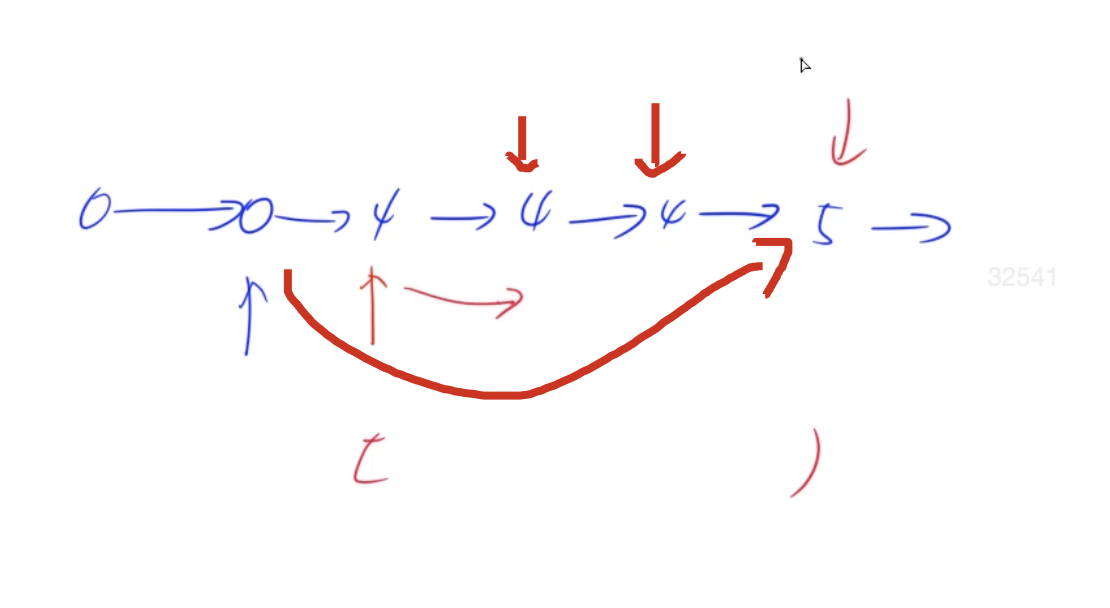 0 → 0 → 4 → 4 → 4 → 5 →
32541
[ )